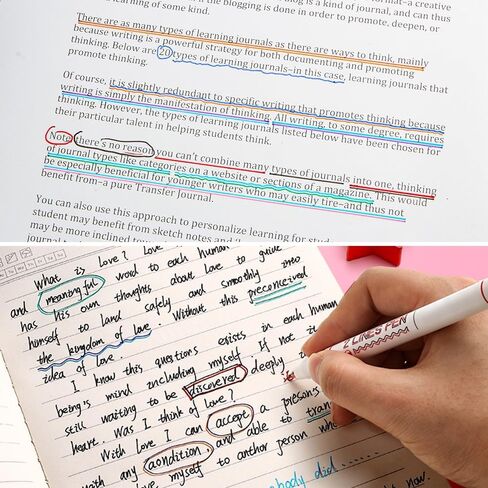 learning of some kind.
if the blogging is done in order to promote, deepen, or
There are as many types of learning journals as there are ways to think, mainly
because writing is a powerful strategy for both documenting and promoting
thinking. Below are 20 types of learning journals–in this case, learning journals that
promote thinking.
Of course, it is slightly redundant to specific writing that promotes thinking because
writing is simply the manifestation of thinking. All writing, to some degree, requires
thinking. However, the types of learning journals listed below have been chosen for
their particular talent in helping students think.
Note there's no reason you can't combine many types of journals into one, thinking
of journal types like categories on a website or sections of a magazine. This would
be especially beneficial for younger writers who may easily tire–and thus not
benefit from–a pure Transfer Journal.
You can also use this approach to personalize learning for
student may benefit from sketch notes
may be more inclined
What is love? Love
and meaningful word to each human
has his own thoughts about love to guide
himself to land safely and smoothly into
the kingdom of love. Without this preconceived
idea of love.
I know this questions exists in each human
being's mind including myself. If not it
still waiting to be discovered deeply
heart. Was I think of love?
With Love I can accept a
with any aondition, and able to
love myself to anthor person
2 LINES PEN